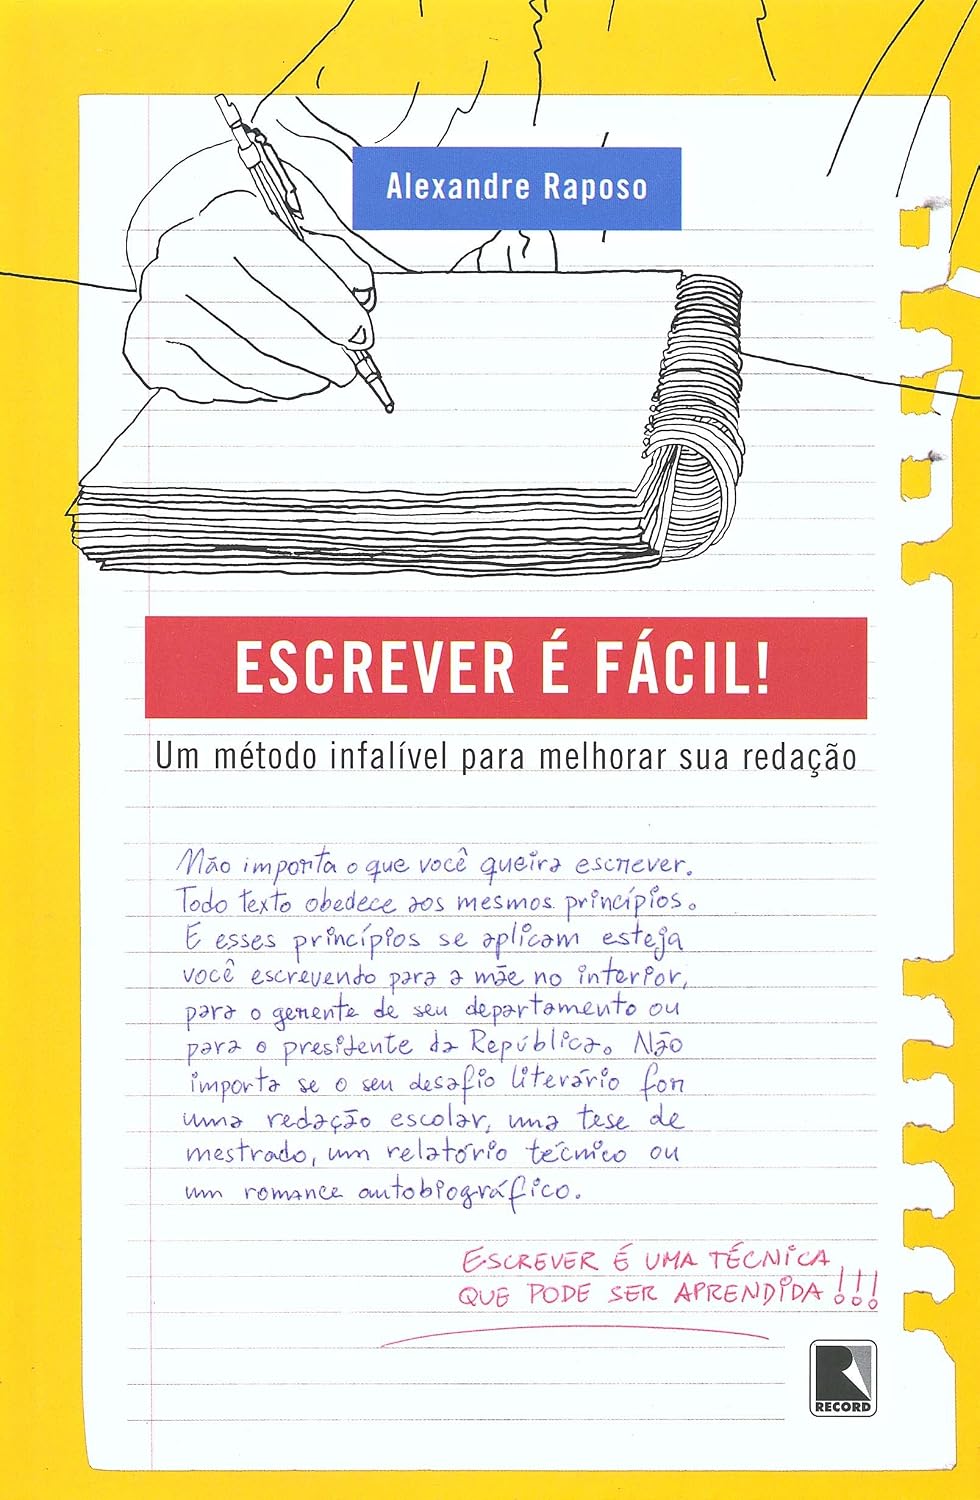 Alexandre Raposo
ESCREVER É FÁCIL!
Um método infalível para melhorar sua redação
Não importa o que você queira escrever.
Todo texto obedece aos mesmos princípios.
E esses princípios se aplicam esteja
você escrevendo para a mãe no interior,
para o gerente de seu departamento ou
para o presidente da República. Não
importa se o seu desafio literário for
uma redação escolar, uma tese de
mestrado, um relatório técnico ou
um romance autobiográfico.
ESCREVER É UMA TÉCNICA
QUE PODE SER APRENDIDA!!!
R
RECORD